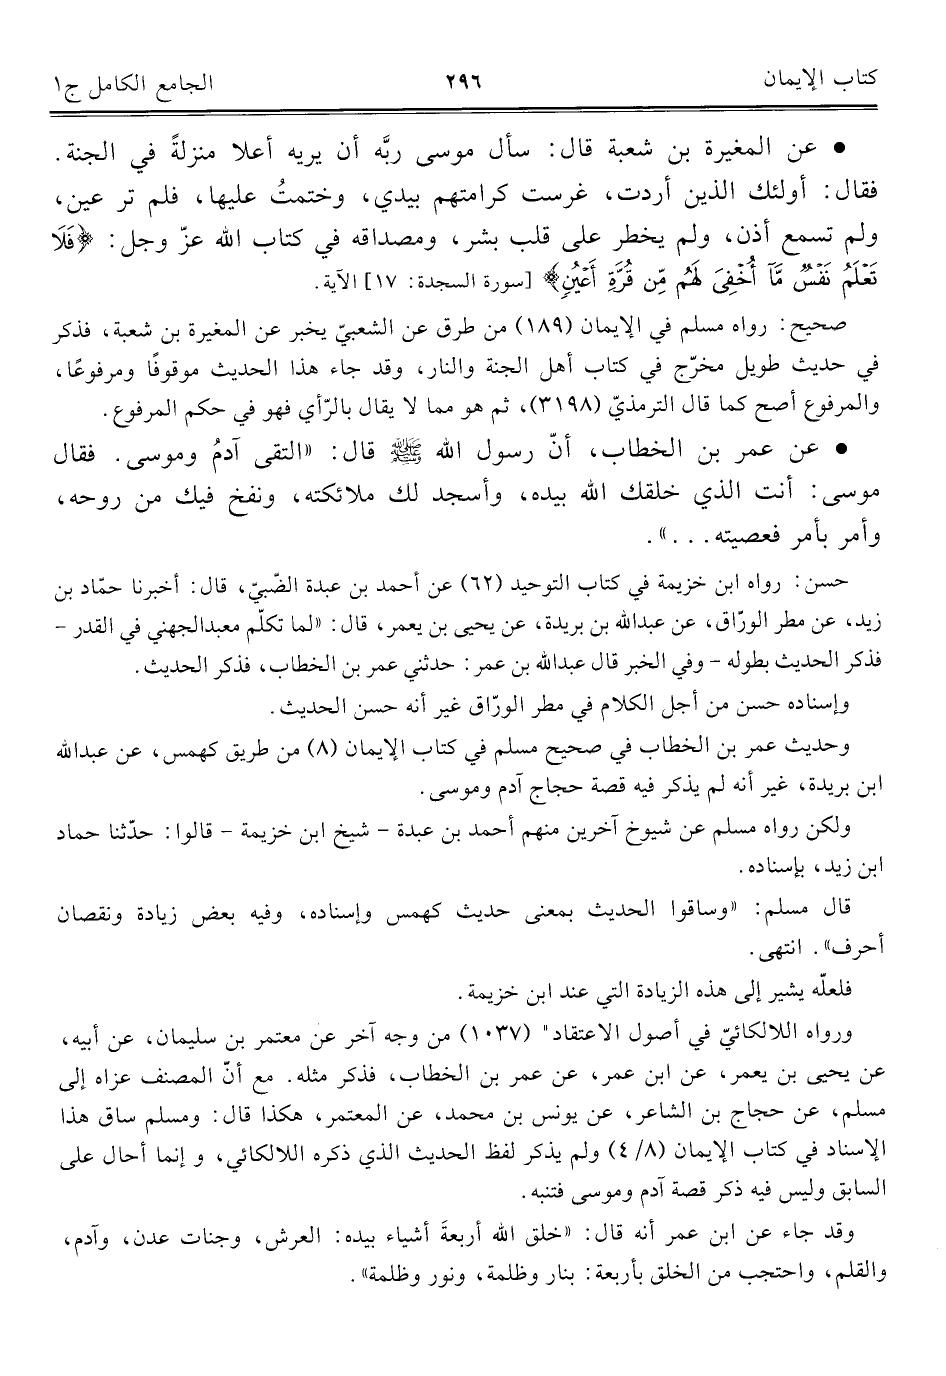 كتاب الإيمان ٢٩٦ الجامع الكامل ج١
• عن المغيرة بن شعبة قال: سأل موسى ربَّه أن يريه أعلا منزلةً في الجنة.
فقال: أولئك الذين أردت، غرست كرامتهم بيدي، وختمتُ عليها، فلم تر عين،
ولم تسمع أذن، ولم يخطر على قلب بشر، ومصداقه في كتاب الله عزّ وجل: ﴿فَلَا
تَعْلَمُ نَفْسٌ مَّآ أُخْفِىَ لَهُم مِّن قُرَّةِ أَعْيُنٍ﴾ [سورة السجدة: ١٧] الآية.
صحيح: رواه مسلم في الإيمان (١٨٩) من طرق عن الشعبيّ يخبر عن المغيرة بن شعبة، فذكر
في حديث طويل مخرّج في كتاب أهل الجنة والنار، وقد جاء هذا الحديث موقوفًا ومرفوعًا،
والمرفوع أصح كما قال الترمذيّ (٣١٩٨)، ثم هو مما لا يقال بالرّأي فهو في حكم المرفوع.
• عن عمر بن الخطاب، أنّ رسول الله ﷺ قال: «التقى آدمُ وموسى. فقال
موسى: أنت الذي خلقك الله بيده، وأسجد لك ملائكته، ونفخ فيك من روحه،
وأمر بأمر فعصيته...».
حسن: رواه ابن خزيمة في كتاب التوحيد (٦٢) عن أحمد بن عبدة الضّبيّ، قال: أخبرنا حمّاد بن
زيد، عن مطر الورّاق، عن عبدالله بن بريدة، عن يحيى بن يعمر، قال: «لما تكلّم معبدالجهني في القدر -
فذكر الحديث بطوله - وفي الخبر قال عبدالله بن عمر: حدثني عمر بن الخطاب، فذكر الحديث.
وإسناده حسن من أجل الكلام في مطر الورّاق غير أنه حسن الحديث.
وحديث عمر بن الخطاب في صحيح مسلم في كتاب الإيمان (٨) من طريق كهمس، عن عبدالله
ابن بريدة، غير أنه لم يذكر فيه قصة حجاج آدم وموسى.
ولكن رواه مسلم عن شيوخ آخرين منهم أحمد بن عبدة - شيخ ابن خزيمة - قالوا: حدّثنا حماد
ابن زيد، بإسناده.
قال مسلم: «وساقوا الحديث بمعنى حديث كهمس وإسناده، وفيه بعض زيادة ونقصان
أحرف». انتهى.
فلعلّه يشير إلى هذه الزيادة التي عند ابن خزيمة.
ورواه اللالكائيّ في أصول الاعتقاد" (١٠٣٧) من وجه آخر عن معتمر بن سليمان، عن أبيه،
عن يحيى بن يعمر، عن ابن عمر، عن عمر بن الخطاب، فذكر مثله. مع أنّ المصنف عزاه إلى
مسلم، عن حجاج بن الشاعر، عن يونس بن محمد، عن المعتمر، هكذا قال: ومسلم ساق هذا
الإسناد في كتاب الإيمان (٨/ ٤) ولم يذكر لفظ الحديث الذي ذكره اللالكائي، و إنما أحال على
السابق وليس فيه ذكر قصة آدم وموسى فتنبه.
وقد جاء عن ابن عمر أنه قال: «خلق الله أربعةَ أشياء بيده: العرش، وجنات عدن، وآدم،
والقلم، واحتجب من الخلق بأربعة: بنار وظلمة، ونور وظلمة».